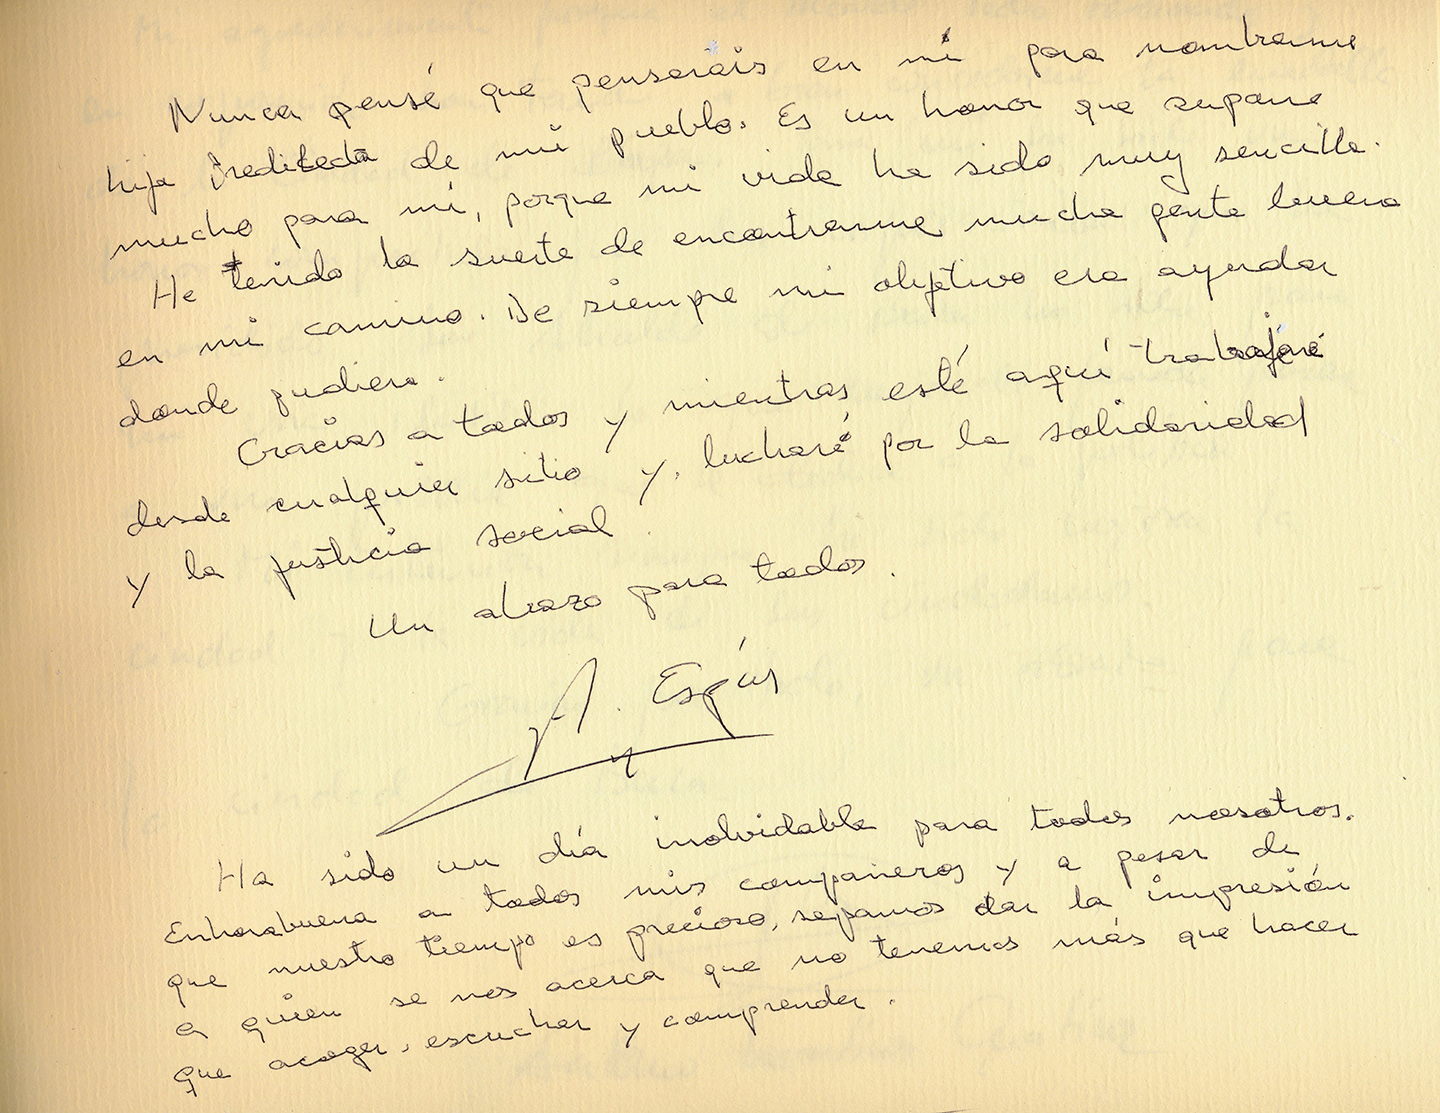 Nunca pensé que pensarais en mí para nombrarme
hija Predilecta de mi pueblo. Es un honor que supone
mucho para mí, porque mi vida ha sido muy sencilla.
He tenido la suerte de encontrarme mucha gente buena
en mi camino. De siempre mi objetivo era ayudar
donde pudiera.
Gracias a todos y mientras esté aquí trabajaré
desde cualquier sitio y, lucharé por la solidaridad
y la justicia social.
Un abrazo para todos.
A. Espín
Ha sido un día inolvidable para todos nosotros.
Enhorabuena a todos mis compañeros y a pesar de
que nuestro tiempo es precioso, sepamos dar la impresión
a quien se nos acerca que no tenemos más que hacer
que acoger, escuchar y comprender.